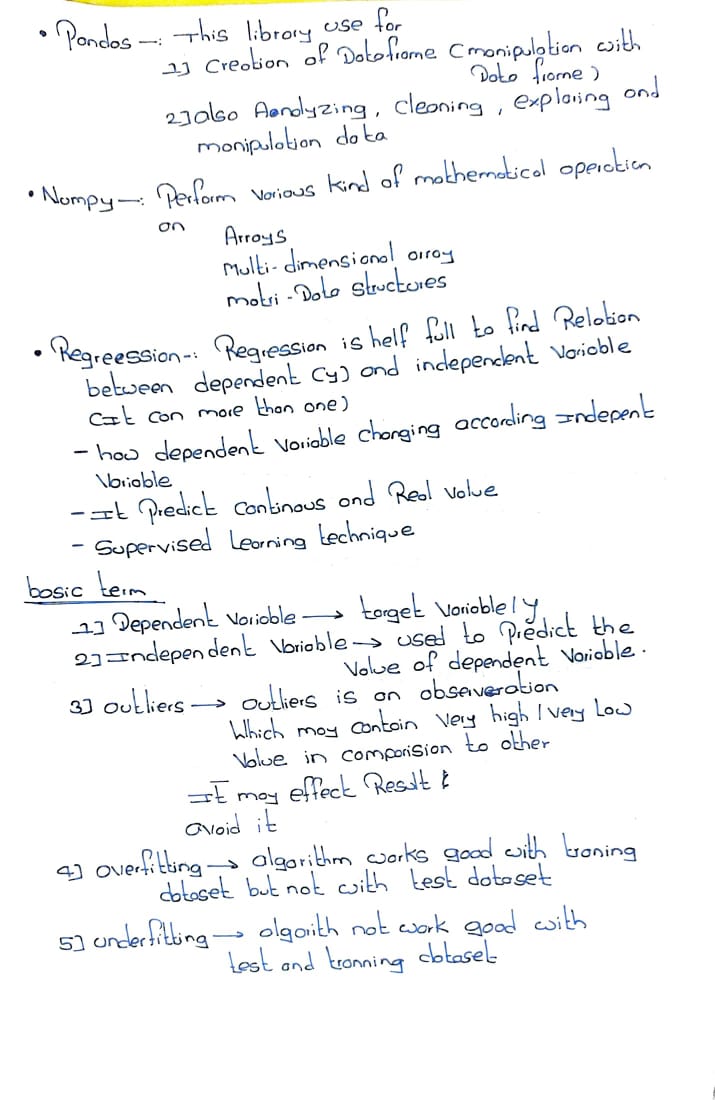 • Pandas -: This library use for
1] Creation of Dataframe (manipulation with
Data frame)
2] also Aanalyzing, cleaning, exploring and
manipulation data
• Numpy -: Perform various kind of mathematical operation
on
Arrays
Multi-dimensional array
matri-Data structures
• Regreession -: Regression is helf full to find Relation
between dependent (y) and independent Variable
(It can more than one)
- how dependent Variable changing according Indepent
Variable
- It Predict Continous and Real value
- Supervised Learning technique
basic term
1] Dependent Variable → target Variable/y
2] Independent Variable → used to Predict the
Value of dependent Variable.
3] outliers → outliers is an observeration
Which may contain very high / very Low
Value in comparision to other
It may effect Result &
avoid it
4] overfitting → algorithm works good with traning
dataset but not with test dataset
5] underfitting → algorith not work good with
test and tranning dataset